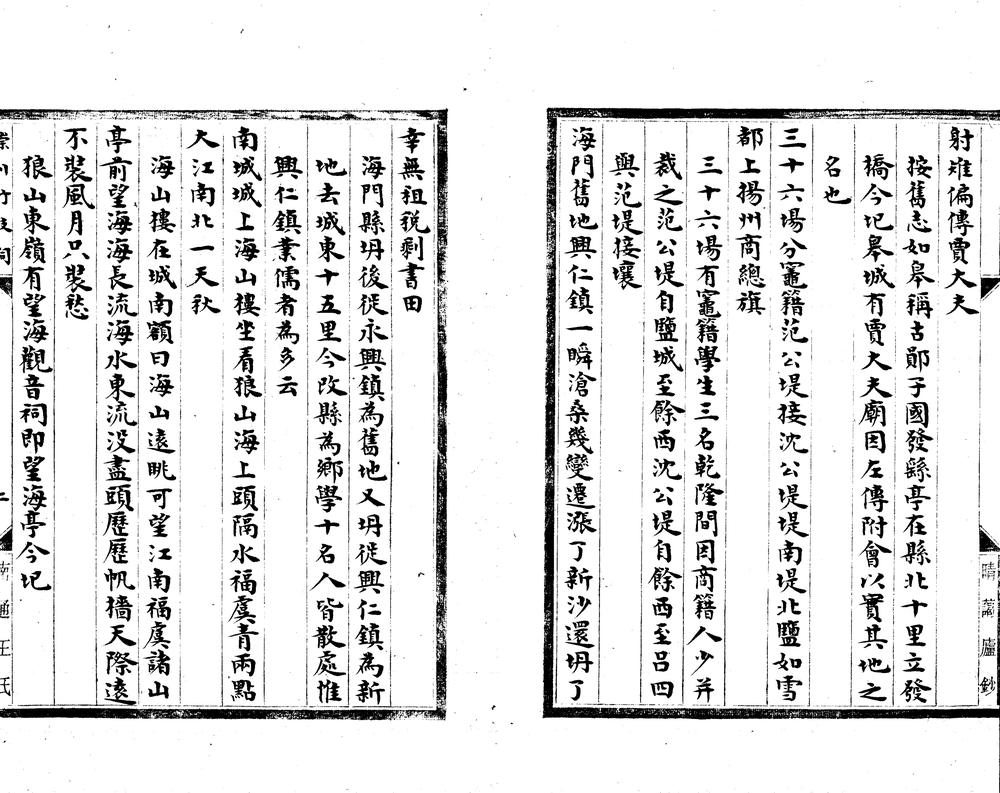 射雉偏傳賈大夫
按舊志如皋稱古鄖子國發繇亭在縣北十里立發
橋今圮皋城有賈大夫廟因左傳附會以實其地之
名也
三十六場分竈籍范公堤接沈公堤堤南堤北鹽如雪
都上揚州商總旗
三十六場有竈籍學生三名乾隆間因商籍人少并
裁之范公堤自鹽城至餘西沈公堤自餘西至呂四
與范堤接壤
海門舊地興仁鎮一瞬滄桑幾變遷漲了新沙還坍了
幸無租稅剩書田
海門縣坍後徙永興鎮為舊地又坍徙興仁鎮為新
地去城東十五里今改縣為鄉學十名人皆散處惟
興仁鎮業儒者為多云
南城城上海山樓坐看狼山海上頭隔水福虞青兩點
大江南北一天秋
海山樓在城南額曰海山遠眺可望江南福虞諸山
亭前望海海長流海水東流没盡頭歷歷帆檣天際遠
不裝風月只裝愁
狼山東嶺有望海觀音祠即望海亭今圮
崇川竹枝詞
二
南通王氏
晴藹廬鈔